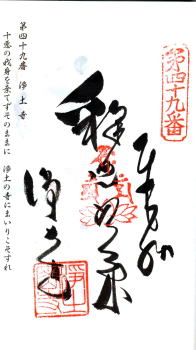 第四十九番
奉拝
釈迦如来
浄土寺
第四十九番 浄土寺
十悪の我身を棄てずそのままに 浄土の寺にまいりこそすれ